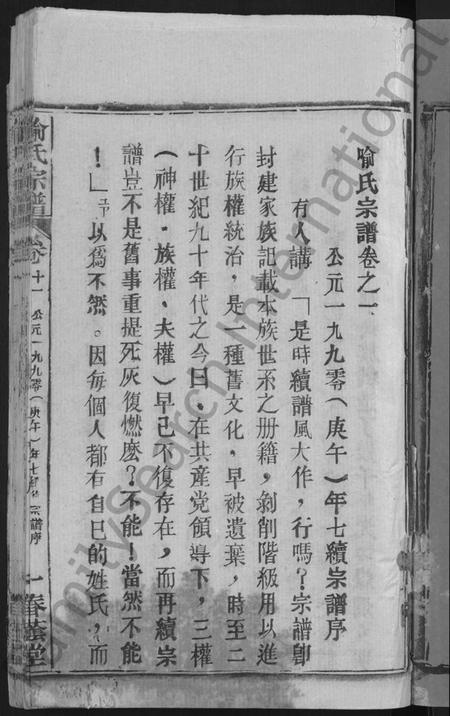 喻氏宗譜卷之一
公元一九九零(庚午)年七續宗譜序
有人講「是時續譜風大作,行嗎?宗譜卽
封建家族記載本族世系之册籍,剝削階級用以進
行族權統治,是一種舊文化,早被遺棄,時至二
十世紀九十年代之今日,在共產党領導下,三權
(神權·族權、夫權)早已不復存在,而再續宗
譜豈不是舊事重提死灰復燃麼?不能!當然不能
!」予以爲不然。因每個人都有自己的姓氏,而
喻氏宗譜 卷十一 公元一九九零(庚午)年七續宗譜序 一 春蔭堂
FamilySearch International